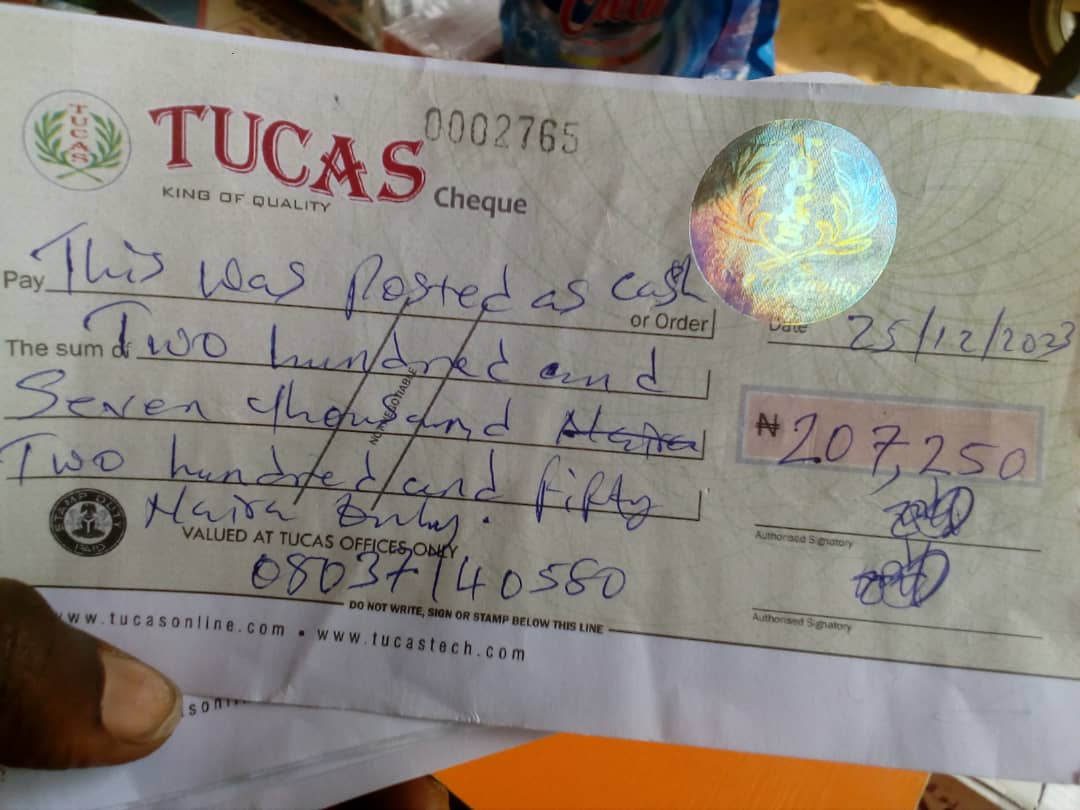 TUCAS
TUCAS
KING OF QUALITY
0002765
Cheque
Quality
Pay This was Posted as cash
or Order
Date 25/12/2023
The sum of Two hundred and
Seven thousand Naira
Two hundred and fifty
Naira Only.
NOT NEGOTIABLE
₦ 207,250
STAMP DUTY
PAID
VALUED AT TUCAS OFFICES ONLY
08037140580
Authorised Signatory
Authorised Signatory
DO NOT WRITE, SIGN OR STAMP BELOW THIS LINE
www.tucasonline.com • www.tucastech.com